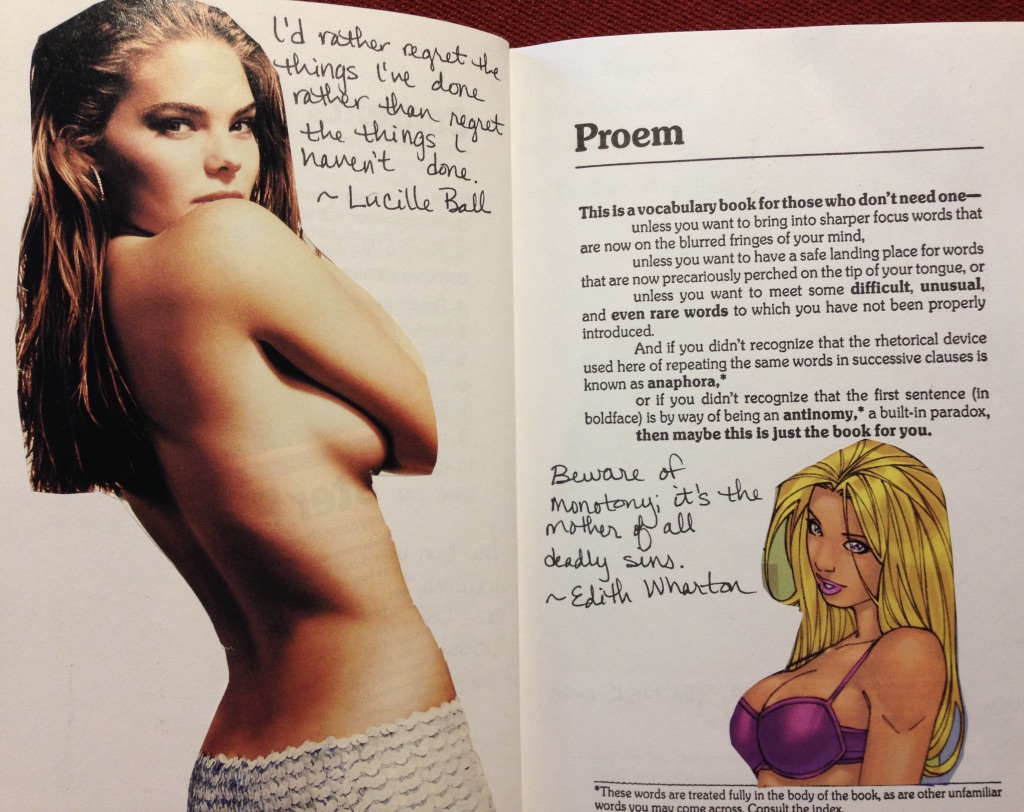 I'd rather regret the
things I've done
rather than regret
the things I
haven't done.
~ Lucille Ball
Proem
This is a vocabulary book for those who don't need one—
unless you want to bring into sharper focus words that
are now on the blurred fringes of your mind,
unless you want to have a safe landing place for words
that are now precariously perched on the tip of your tongue, or
unless you want to meet some difficult, unusual,
and even rare words to which you have not been properly
introduced.
And if you didn't recognize that the rhetorical device
used here of repeating the same words in successive clauses is
known as anaphora,*
or if you didn't recognize that the first sentence (in
boldface) is by way of being an antinomy,* a built-in paradox,
then maybe this is just the book for you.
Beware of
monotony; it's the
mother of all
deadly sins.
~ Edith Wharton
*These words are treated fully in the body of the book, as are other unfamiliar
words you may come across. Consult the index.